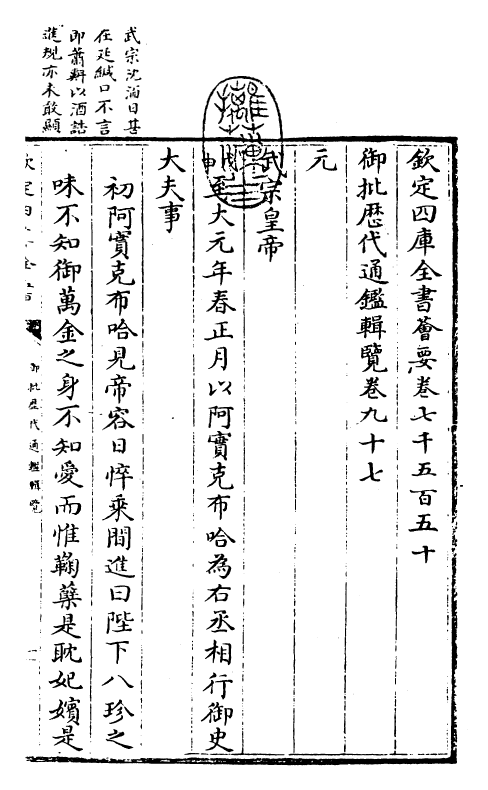 欽定四庫全書薈要卷七千五百五十
御批歴代通鑑輯覽卷九十七
元
武宗皇帝
戊申至大元年春正月以阿實克布哈為右丞相行御史
大夫事
初阿實克布哈見帝容日悴乘間進曰陛下八珍之
味不知御萬金之身不知愛而惟鞠蘗是耽妃嬪是
武宗沈湎日甚
在廷緘口不言
即蕭㪺以酒誥
進規亦未敢顯
御批歴代通鑑輯覽